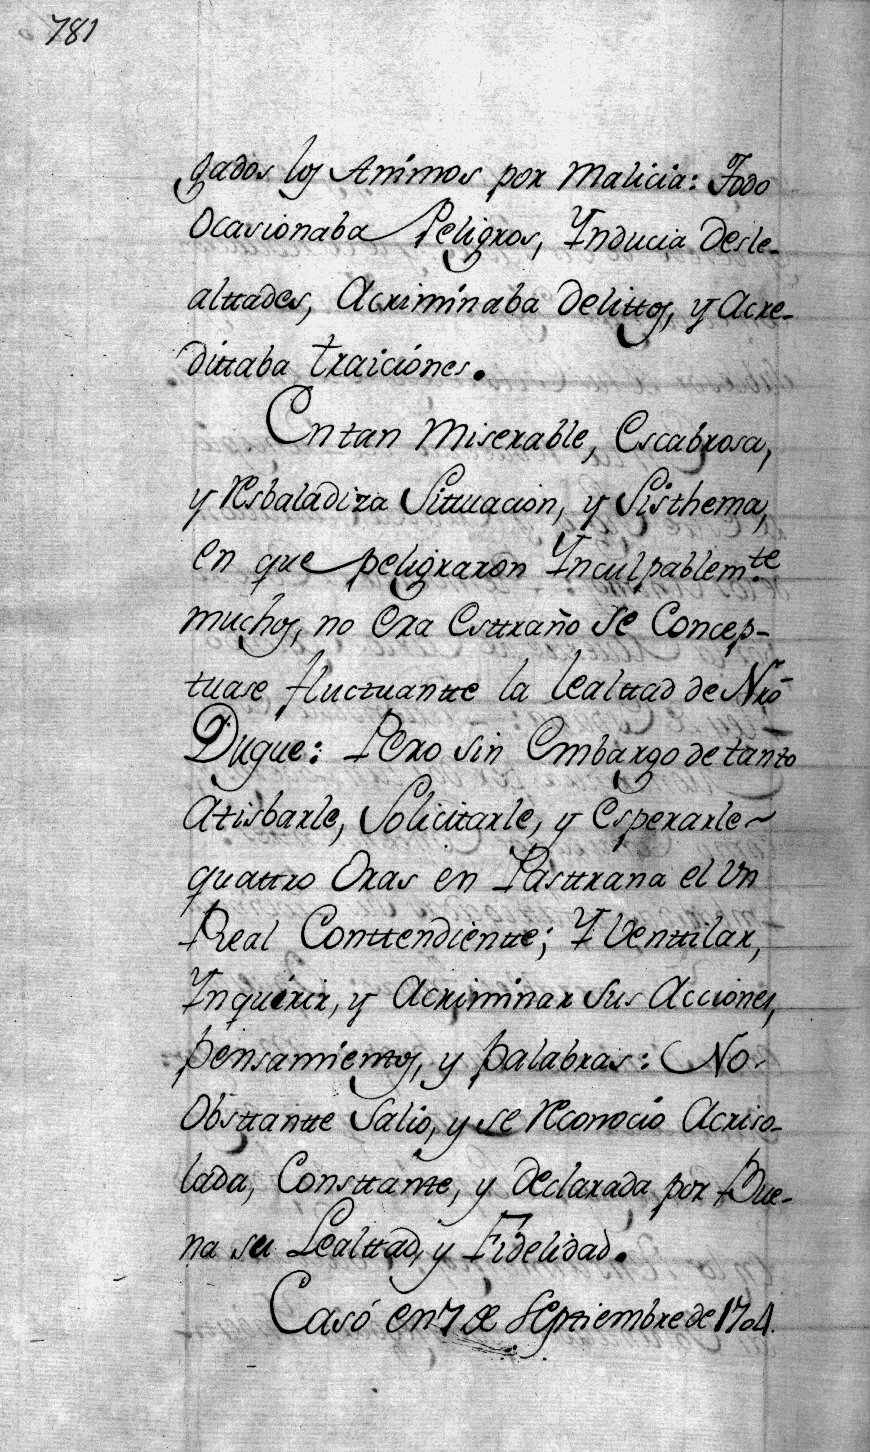 781
gados los Animos por malicia: Todo
Ocasionaba Peligros, Ynducia Desle-
alttades, Acriminaba Delittos, y Acre-
dittaba traiciónes.
En tan Miserable, Escabrosa,
y Resbaladiza Sittuacion, y Sisthema,
en que peligraron Ynculpablem.te
muchos, no era Esttraño se Concep-
tuase fluctuantte la lealttad de Nrõ
Duque: Pero sin embargo de tanto
Atisbarle, Solicitarle, y Esperarle~
quattro Oras en Pasttrana el Un
Real Conttendientte; Y Venttilar,
Ynquirir, y Acriminar sus Acciones,
pensamientos, y palabras: No
Obsttantte Salio, y se Reconocio Acriso-
lada, Consttante, y Declarada por Bue-
na su Lealttad, y Fidelidad.
Casó en 7 de Septiembre de 1704.